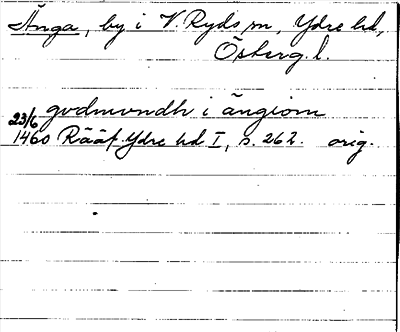 Änga, by i V. Ryds sn, Ydre hd,
Östergl.
gvdmvndh i ängiom
23/6
1460 Rääf Ydre hd I, s. 262. orig.